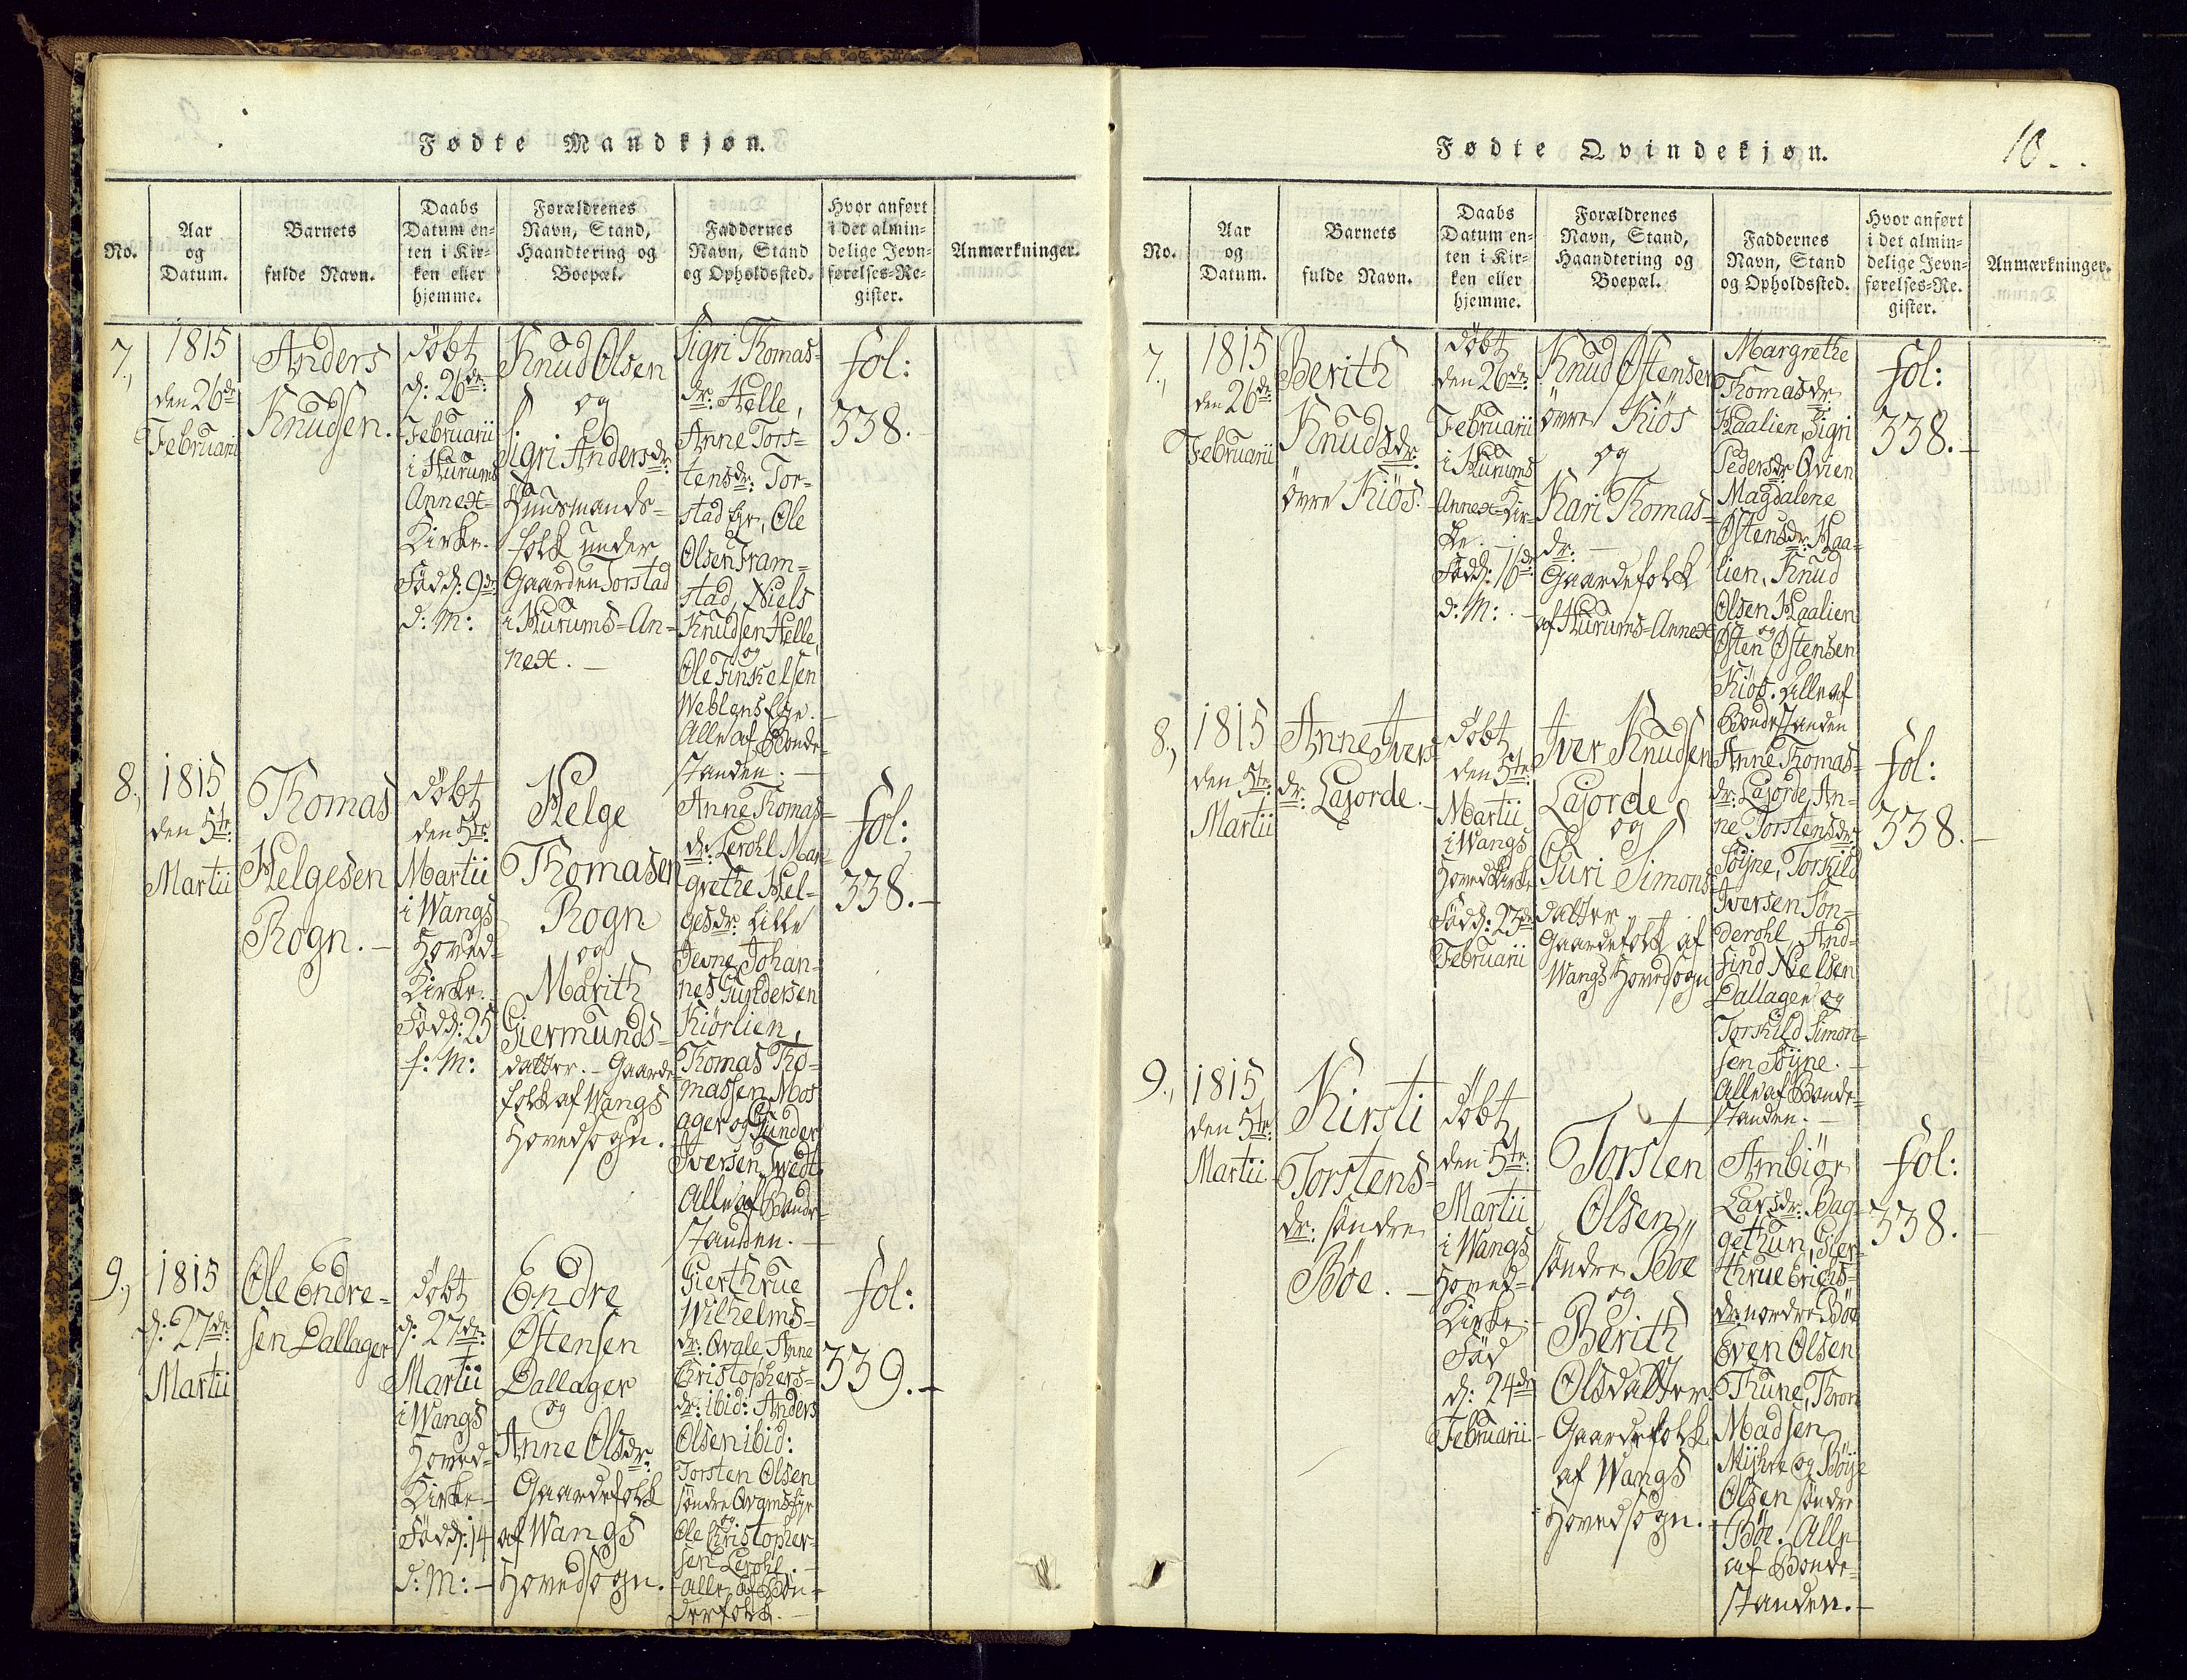 Fødte Mandkjøn.
No.
Aar
og
Datum.
Barnets
fulde Navn.
Daabs
Datum en-
ten i Kir-
ken eller
hjemme.
Forældrenes
Navn, Stand,
Haandtering og
Boepæl.
Faddernes
Navn, Stand
og Opholdssted.
Hvor anført
i det almin-
delige Jevn-
førelses-Re-
gister.
Anmærkninger.
7.,
1815
den 26de
Februarii
Anders
Knudsen.
döbt
d: 26de:
Februarii
i Hurums
Annex-
Kirke.
Född: 9de
d: M:
Knud Olsen
og
Sigri Andersdr:
Huusmands-
folk under
Gaarden Torstad
i Hurums-An-
nex. —
Sigri Thomas-
dr: Helle,
Anne Tors-
tensdr: Tor-
stad Eye, Ole
Olsen Fram-
stad, Niels
Knudsen Helle,
og
Ole Finkelsen
Weblens Eye.
Alle af Bonde-
standen. —
fol:
338.
8.,
1815
den 5te:
Martii
Thomas
Helgesen
Rogn. —
döbt
den 5te
Martii
i Wangs
Hoved-
Kirke.
Född: 25
f: M:
Helge
Thomasen
Rogn
og
Marith
Giermunds-
datter. – Gaarde
folk af Wangs
Hovedsogn.
Anne Thomas-
dr: Lerohl Mar-
grethe Hel-
gesdr: Lille
Jevne, Johan-
nes Gundersen
Kiörlien,
Thomas Tho-
massen Mos
ager og Gunder
Iversen Twedt
Alle af Bonde-
standen. —
fol:
338. —
9.,
1815
d: 27de:
Martii
Ole Endre-
sen Dallager
döbt
d: 27de:
Martii
i Wangs
Hoved-
Kirke –
Född: 14
d: M: –
Endre
Östensen
Dallager
og
Anne Olsdr:
Gaardefolk
af Wangs
Hovedsogn.
Gierthrue
Wilhelms-
dr: Qvale, Anne
Christophers-
dr: ibid: Anders
Olsen ibid:
Torsten Olsen
söndre Qvams Eye
og
Ole Christopher-
sen Lerohl. —
alle af Bön-
derfolk. —
fol:
339. —
Fødte Qvindekjøn.
10.
No.
Aar
og
Datum.
Barnets
fulde Navn.
Daabs
Datum en-
ten i Kir-
ken eller
hjemme.
Forældrenes
Navn, Stand,
Haandtering og
Boepæl.
Faddernes
Navn, Stand
og Opholdssted.
Hvor anført
i det almin-
delige Jevn-
førelses-Re-
gister.
Anmærkninger.
7.,
1815
den 26de:
Februarii
Berith
Knudsdr:
övre Kiös.
döbt
den 26de:
Februarii
i Hurums
Annex-Kir-
ke. –
Född: 16de:
d: M: –
Knud Östensen
övre Kiös
og
Kari Thomas-
dr: —
Gaardefolk
af Hurums-Annex
Margrethe
Thomasdr:
Haalien, Sigri
Pedersdr: Qvien
Magdalene
Östensdr: Haa-
lien, Knud
Olsen Haalien
og
Östen Östensen
Kiös. alle af
Bondestanden
fol:
338. —
8.,
1815
den 5te:
Martii
Anne Ivers-
dr: Lajorde. –
döbt
den 5te
Martii
i Wangs
Hovedkirke
Född: 23de
Februarii
Iver Knudsen
Lajorde
og
Guri Simons-
datter
Gaardefolk af
Wangs Hovedsogn
Anne Thomas-
dr: Lajorde, An-
ne Torstensdr:
Söÿne, Torkild
Iversen Sön-
derohl, And-
find Nielsen
Dallager og
Torkild Simon-
sen Söÿne. –
Alle af Bonde-
standen. —
fol:
338. —
9.,
1815
den 5te:
Martii
Kirsti
Torstens-
dr: söndre
Böe. —
döbt
den 5te:
Martii
i Wangs
Hoved-
Kirke. –
Föd
d: 24de
Februarii
Torsten
Olsen
söndre Böe
og
Berith
Olsdatter
Gaardefolk
af Wangs
Hovedsogn. –
Ambiör
Larsdr: Bag-
gethun, Gier-
thrue Erichs-
dr: nordre Böe
Even Olsen
Thune, Thron
Madsen
Mÿhre og Böÿe
Olsen söndre
Böe. Alle
af Bonde-
standen. —
fol:
338. —